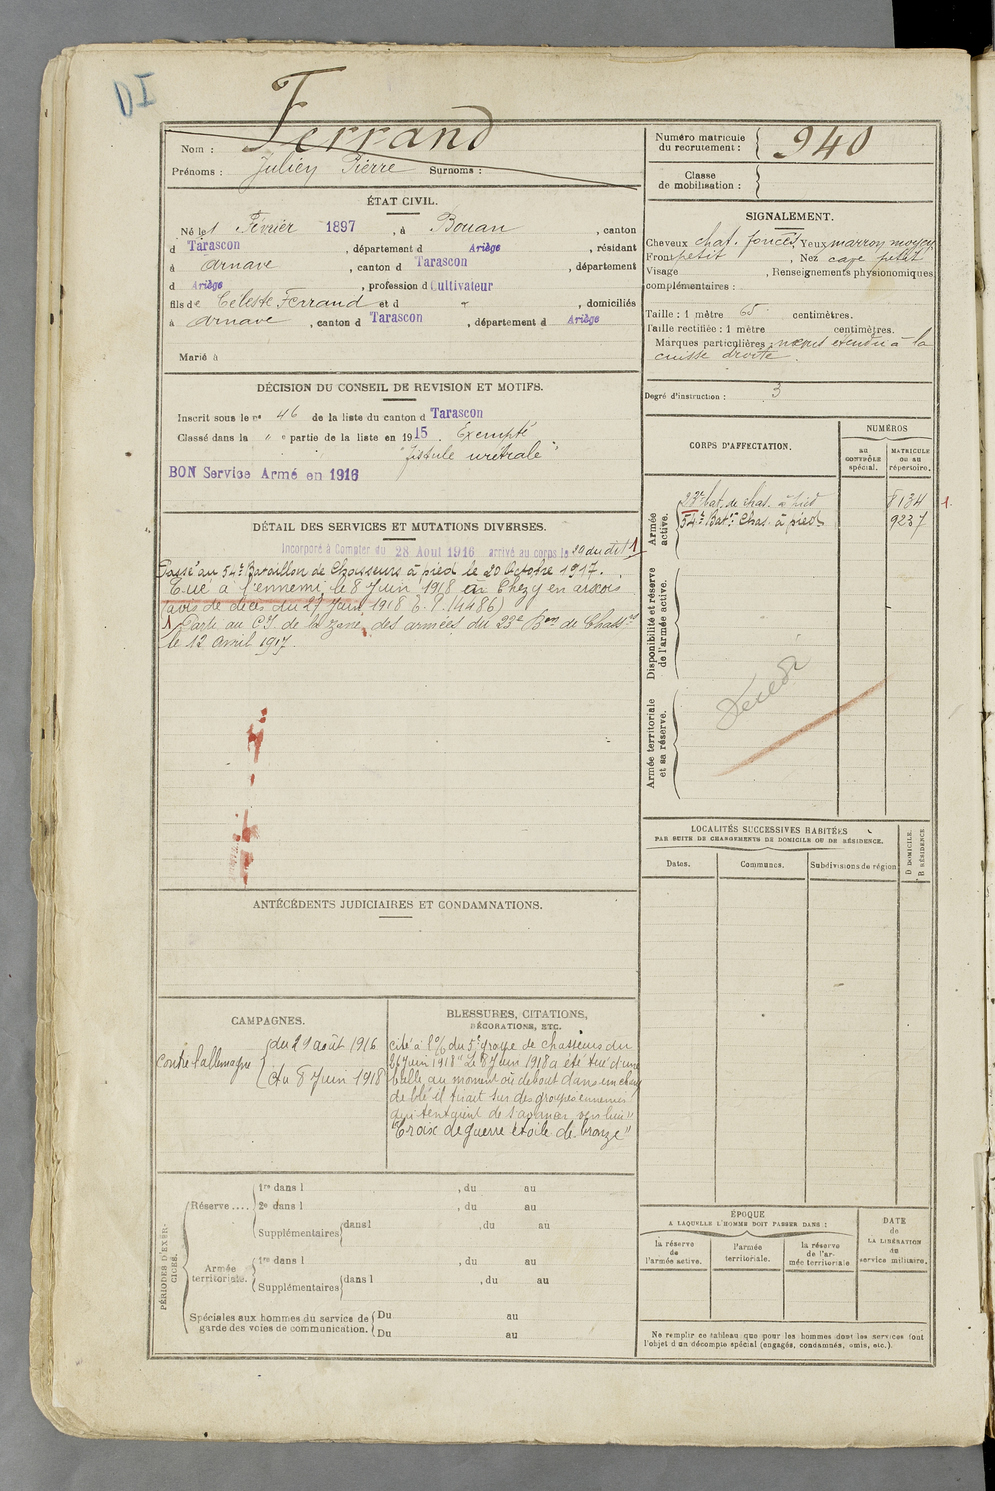 DI
Nom : Ferrand
Prénoms : Julien Pierre Surnoms :
Numéro matricule du recrutement : 940
Classe de mobilisation :
ÉTAT CIVIL.
Né le 1 Février 1897, à Bouan, canton
d Tarascon, département d Ariège, résidant
à Arnave, canton d Tarascon, département
d Ariège, profession d Cultivateur
fils de Céleste Ferrand et d " , domiciliés
à Arnave, canton d Tarascon, département d Ariège
Marié à
SIGNALEMENT.
Cheveux chat. foncés, Yeux marron moyen
Front petit, Nez cave petit
Visage , Renseignements physionomiques
complémentaires :
Taille : 1 mètre 65 centimètres.
Taille rectifiée : 1 mètre centimètres.
Marques particulières : nœvus étendu à la
cuisse droite.
Degré d'instruction : 3
DÉCISION DU CONSEIL DE REVISION ET MOTIFS.
Inscrit sous le no 46 de la liste du canton d Tarascon
Classé dans la " e partie de la liste en 1915. Exempté
"fistule urétrale"
BON Service Armé en 1916
CORPS D'AFFECTATION.
NUMÉROS
au CONTRÔLE spécial.
MATRICULE ou au répertoire.
Armée active.
23e bat. de chas. à pied 8134 1.
54e Batn Chas. à pied 9237
Disponibilité et réserve de l'armée active.
Armée territoriale et sa réserve.
Décédé
DÉTAIL DES SERVICES ET MUTATIONS DIVERSES.
Incorporé à Compter du 28 Aout 1916 arrivé au corps le 29 du dit 1
Passé au 54e Bataillon de Chasseurs à pied le 20 Octobre 1917.
Tué à l'ennemi le 8 Juin 1918 à Chezy en arxois
(avis de décès du 27 Juin 1918 E. P. 14486)
1 Parti au C.I. de la zone des armées du 23e Bon de Chassrs
le 12 avril 1917.
LOCALITÉS SUCCESSIVES HABITÉES
PAR SUITE DE CHANGEMENTS DE DOMICILE OU DE RÉSIDENCE.
Dates.
Communes.
Subdivisions de région
D DOMICILE.
R RÉSIDENCE
ANTÉCÉDENTS JUDICIAIRES ET CONDAMNATIONS.
CAMPAGNES.
Contre l'allemagne
du 29 août 1916
au 8 Juin 1918
BLESSURES, CITATIONS,
DÉCORATIONS, ETC.
cité à l'O/ du 5e groupe de chasseurs du
26 Juin 1918 "Le 8 Juin 1918 a été tué d'une
balle au moment où debout dans un champ
de blé il tirait sur des groupes ennemis
qui tentaient de s'avancer vers lui"
"Croix de guerre étoile de bronze"
PÉRIODES D'EXERCICES.
Réserve ....
1re dans l , du au
2e dans l , du au
Supplémentaires dans l , du au
Armée territoriale.
1re dans l , du au
Supplémentaires dans l , du au
Spéciales aux hommes du service de
garde des voies de communication.
Du au
Du au
ÉPOQUE
A LAQUELLE L'HOMME DOIT PASSER DANS :
la réserve de l'armée active.
l'armée territoriale.
la réserve de l'armée territoriale
DATE de LA LIBÉRATION du service militaire.
Ne remplir ce tableau que pour les hommes dont les services font
l'objet d'un décompte spécial (engagés, condamnés, omis, etc.).